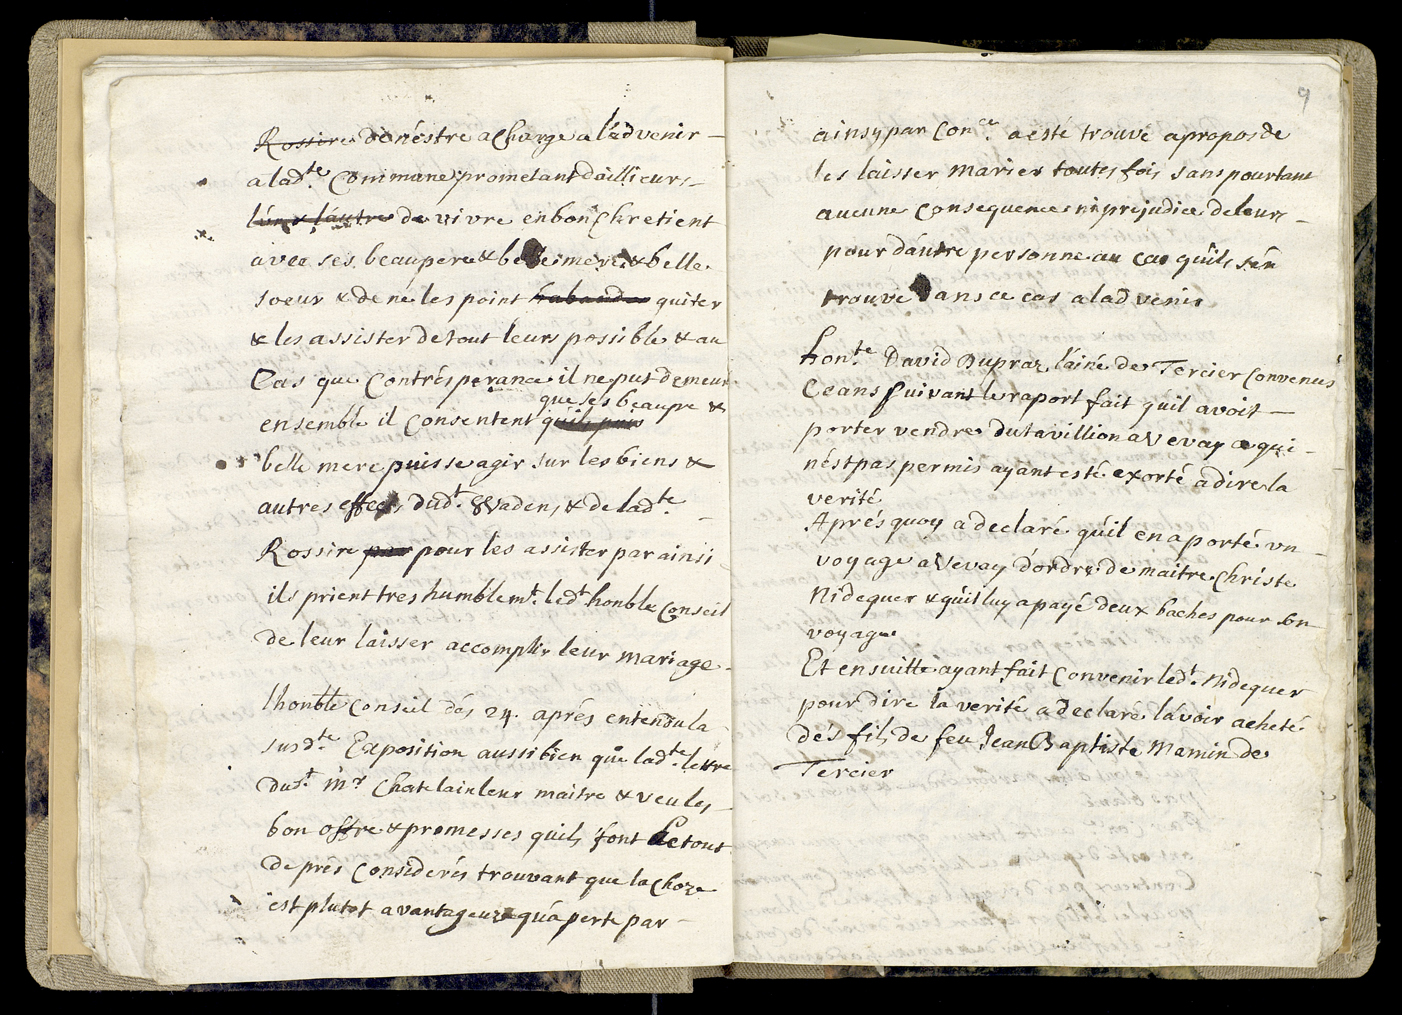 Rossire de néstre a charge a ládvenir
a lad.te Commune prometant dáillieurs
lún & láutre de vivre en bon Chretient
avec ses beaupere & belle mere & belle
soeur & de né les point quiter
& les assister de tout leurs possible & au
Cas que Contréspérance il ne put demeur
que ses beaupre &
ensemblé il consentent quils puis
belle mere puisse agir sur les biens &
autres effects dud.t Wadens & de lad.te
Rossire par pour les assister par ainsi
ils prient tres humblem.t led.t honble Conseil
de leur laisser accomplir leur mariage
lhonble Conseil dés 24. aprés entendu la
susd.te Exposition aussi bien que lad.te lettre
dus.t m.r Chatelain leur maitre & veu les
bon offre & promesses quils font Le tout
de prés considerés trouvant que la Choze
est plutot avantageuze quá perte par
9
ainsy par Con.ce a esté trouvé a propos de
les laisser marier toutes fois sans pourtant
aucune Consequence ni prejudice de leur
pour dáutre personne au cas quils sén
trouve dans ce cas a ladvenir
hon.te David Dupraz láiné de Tercier Convenus
Ceans suivant le raport fait quil avoit
porter vendre du tavillion a Vevay ce qui
nést pas permis ayant esté exorté a dire la
verité
Aprés quoy a declaré quíl en a porté vn
voyage a Vevay dórdre de maitre Christe
Nidequer & quil luy a payé deux baches pour son
voyage
Et ensuitte ayant fait Convenir led.t Nidequer
pour dire la verité a declaré lávoir acheté
dés fils de feu Jean Baptiste Mamin de
Tercier